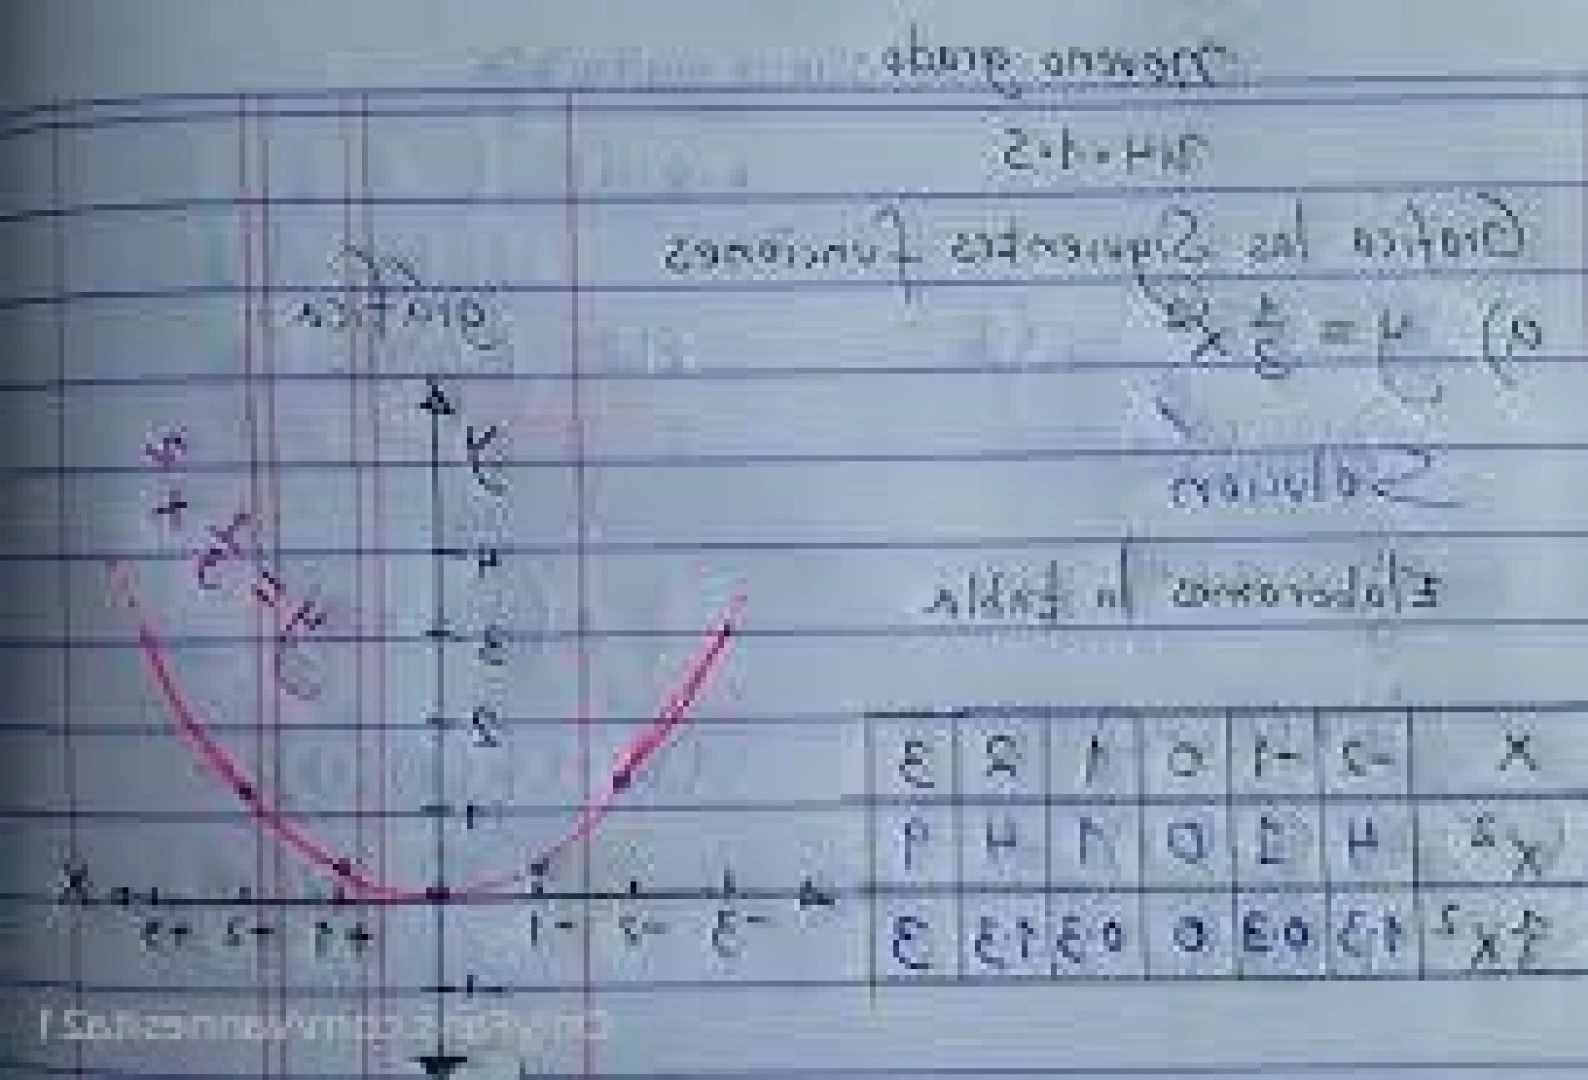 Noveno grado
Grafica las siguientes funciones
a) y = 1/3 x²
Solucion
Elaboramos la tabla
x -2 -1 0 1 2 3
x² 4 1 0 1 4 9
1/3 x² 1.3 0.3 0 0.3 1.3 3
Grafica
y
y = 1/3 x²
4
3
2
1
-3 -2 -1 +1 +2 +3 x
-1